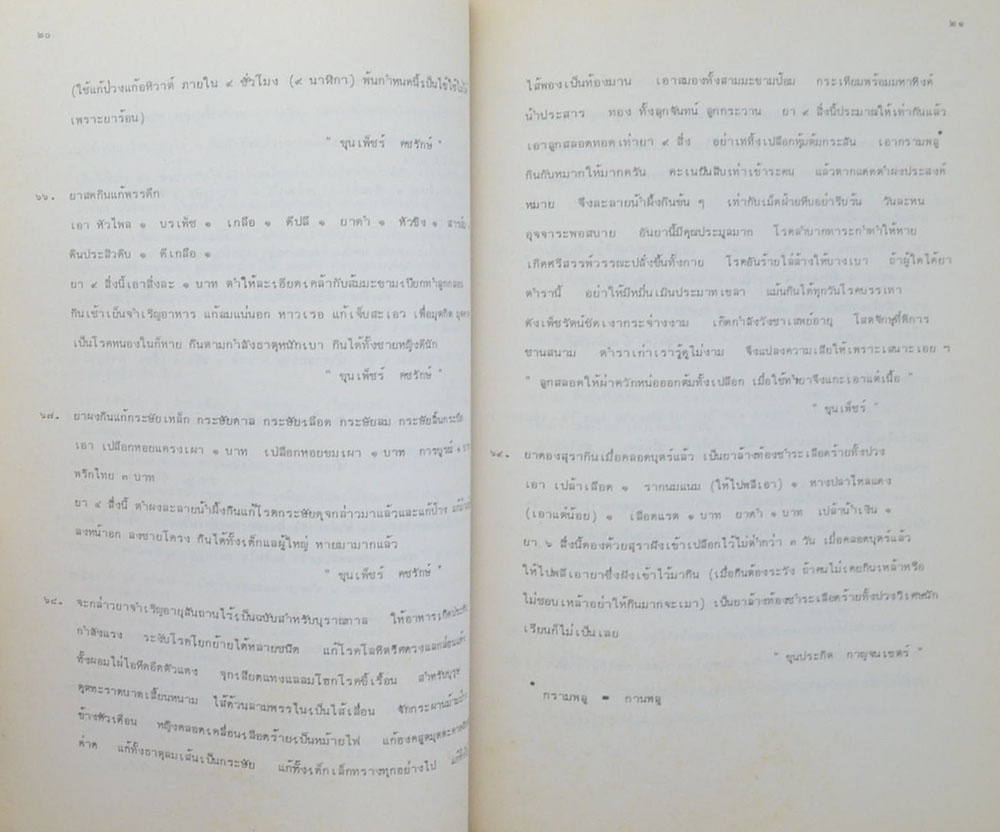 ๒๐
(ใช้แก้ป่วงแก้อหิวาต์ ภายใน ๙ ชั่วโมง (๙ นาฬิกา) พ้นกำหนดนี้เป็นไข้ใช้ไม่ได้
เพราะยาร้อน)
" ขุนเพ็ชร์ คชรักษ์ "
๖๖. ยาสดกินแก้พรรดึก
เอา หัวไพล ๑ บรเพ็ช ๑ เกลือ ๑ ดีปลี ๑ ยาดำ ๑ หัวขิง ๑
ดินประสิวดิบ ๑ ดีเกลือ ๑
ยา ๙ สิ่งนี้เอาสิ่งละ ๑ บาท ตำให้ละเอียดเคล้ากับส้มมะขามเปียกทำลูกกลอน
กินเช้าเย็นจำเริญอาหาร แก้ลมแน่นอก หาวเรอ แก้เจ็บสะเอว เพื่อมุตกิต
เป็นโรคหนองในก็หาย กินตามกำลังธาตุหนักเบา กินได้ทั้งชายหญิงดีนัก
" ขุนเพ็ชร์ คชรักษ์ "
๖๗. ยาผงกินแก้กระษัยเหล็ก กระษัยดาล กระษัยเลือด กระษัยลม
เอา เปลือกหอยแครงเผา ๑ บาท เปลือกหอยขมเผา ๑ บาท การบูรณ์ ๑
พริกไทย ๓ บาท
ยา ๔ สิ่งนี้ ตำผงละลายน้ำผึ้งกินแก้โรคกระษัยดุจกล่าวมาแล้วและแก้ป้าง
ลงหน้าอก ลงชายโครง กินได้ทั้งเด็กแลผู้ใหญ่ หายมามากแล้ว
" ขุนเพ็ชร์ คชรักษ์ "
๖๘. จะกล่าวยาจำเริญอายุสันถานไว้เป็นฉบับสำหรับบุราณกาล ให้อาหารเกิดประทับ
กำลังแรง ระงับโรคโยกย้ายได้หลายชนิด แก้โรคโลหิตริศดวงแลกล่อนแห้ง
ทั้งผอมไผ่ไอหืดอืดตัวแดง จุกเสียดแทงแลลมโฮกโรคขี้เรื้อน สำหรับบุรุษ
คุดทะราดบาดเสี้ยนหนาม ไส้ด้วนลามพรรไนเป็นไส้เลื่อน
ข้างหัวเดือน หญิงคลอดเคลื่อนเลือดร้ายเป็นหม้ายไฟ แก้องคสูดมุตตะคาด
ค่าด แก้ทั้งธาตุลมเส้นเป็นกระษัย แก้ทั้งเด็กเล็กทรางทุกอย่างไป
๒๑
ไส้พองเป็นท้องมาน เอาสมองทั้งสามมะขามป้อม กระเทียมพร้อมมหาหิงค์
น้ำประสาร ทอง ทั้งลูกจันทน์ ลูกกระวาน ยา ๙ สิ่งนี้ประมาณให้เท่ากันแล้ว
เอาลูกสลอดทอดเท่ายา ๙ สิ่ง อย่าเททิ้งเปลือกหุ้มต้มกระสัน เอากรามพลู*
กินกับหมากให้มากครัน คะเนปันสิบเท่าเข้าระคน แล้วตากแดดตำผงประสงค์
หมาย จึงละลายน้ำผึ้งกินข้น ๆ เท่ากับเม็ดฝ้ายหีบอย่ารีบร้น วันละหน
อุจจาระพอสบาย อันยานี้มีคุณประมูลมาก โรคลำบากทาระกำทำให้หาย
เกิดศรีสรรพ์วรรณะปลั่งขึ้นทั้งกาย โรคอันร้ายไล่ล้างให้บางเบา ถ้าผู้ใดได้ยา
ตำรานี้ อย่าให้มีหมื่นเมินประมาทเขลา แม้นกินได้ทุกวันโรคบรรเทา
ดังเพ็ชรัตน์ชัดเงากระจ่างงาม เกิดกำลังวังชาเสพย์อายุ โสตจักษุที่พิการ
ชานสนาม ตำราเก่าเรารู้ดูไม่งาม จึงแปลงความเสียให้เพราะเสนาะเอย ฯ
" ลูกสลอดให้ผ่าควักหน่อออกต้มทั้งเปลือก เมื่อใช้ทำยาจึงแกะเอาแต่เนื้อ "
" ขุนเพ็ชร์ "
๖๙. ยาดองสุรากินเมื่อคลอดบุตร์แล้ว เป็นยาล้างท้องชำระเลือดร้ายทั้งปวง
เอา เปล้าเลือด ๑ รากนมแนม (ให้ไปพลีเอา) ๑ หางปลาไหลแดง
(เอาแต่น้อย) ๑ เลือดแรด ๑ บาท ยาดำ ๑ บาท เปล้าน้ำเงิน ๑
ยา ๖ สิ่งนี้ดองด้วยสุราฝังเข้าเปลือกไว้ไม่ต่ำกว่า ๓ วัน เมื่อคลอดบุตร์แล้ว
ให้ไปพลีเอายาซึ่งฝังเข้าไว้มากิน (เมื่อกินต้องระวัง ถ้าคนไม่เคยกินเหล้าหรือ
ไม่ชอบเหล้าอย่าให้กินมากจะเมา) เป็นยาล้างท้องชำระเลือดร้ายทั้งปวงวิเศษนัก
เรียนก็ไม่เป็นเลย
" ขุนประกิต กาญจนเขตร์ "
* กรามพลู = กานพลู